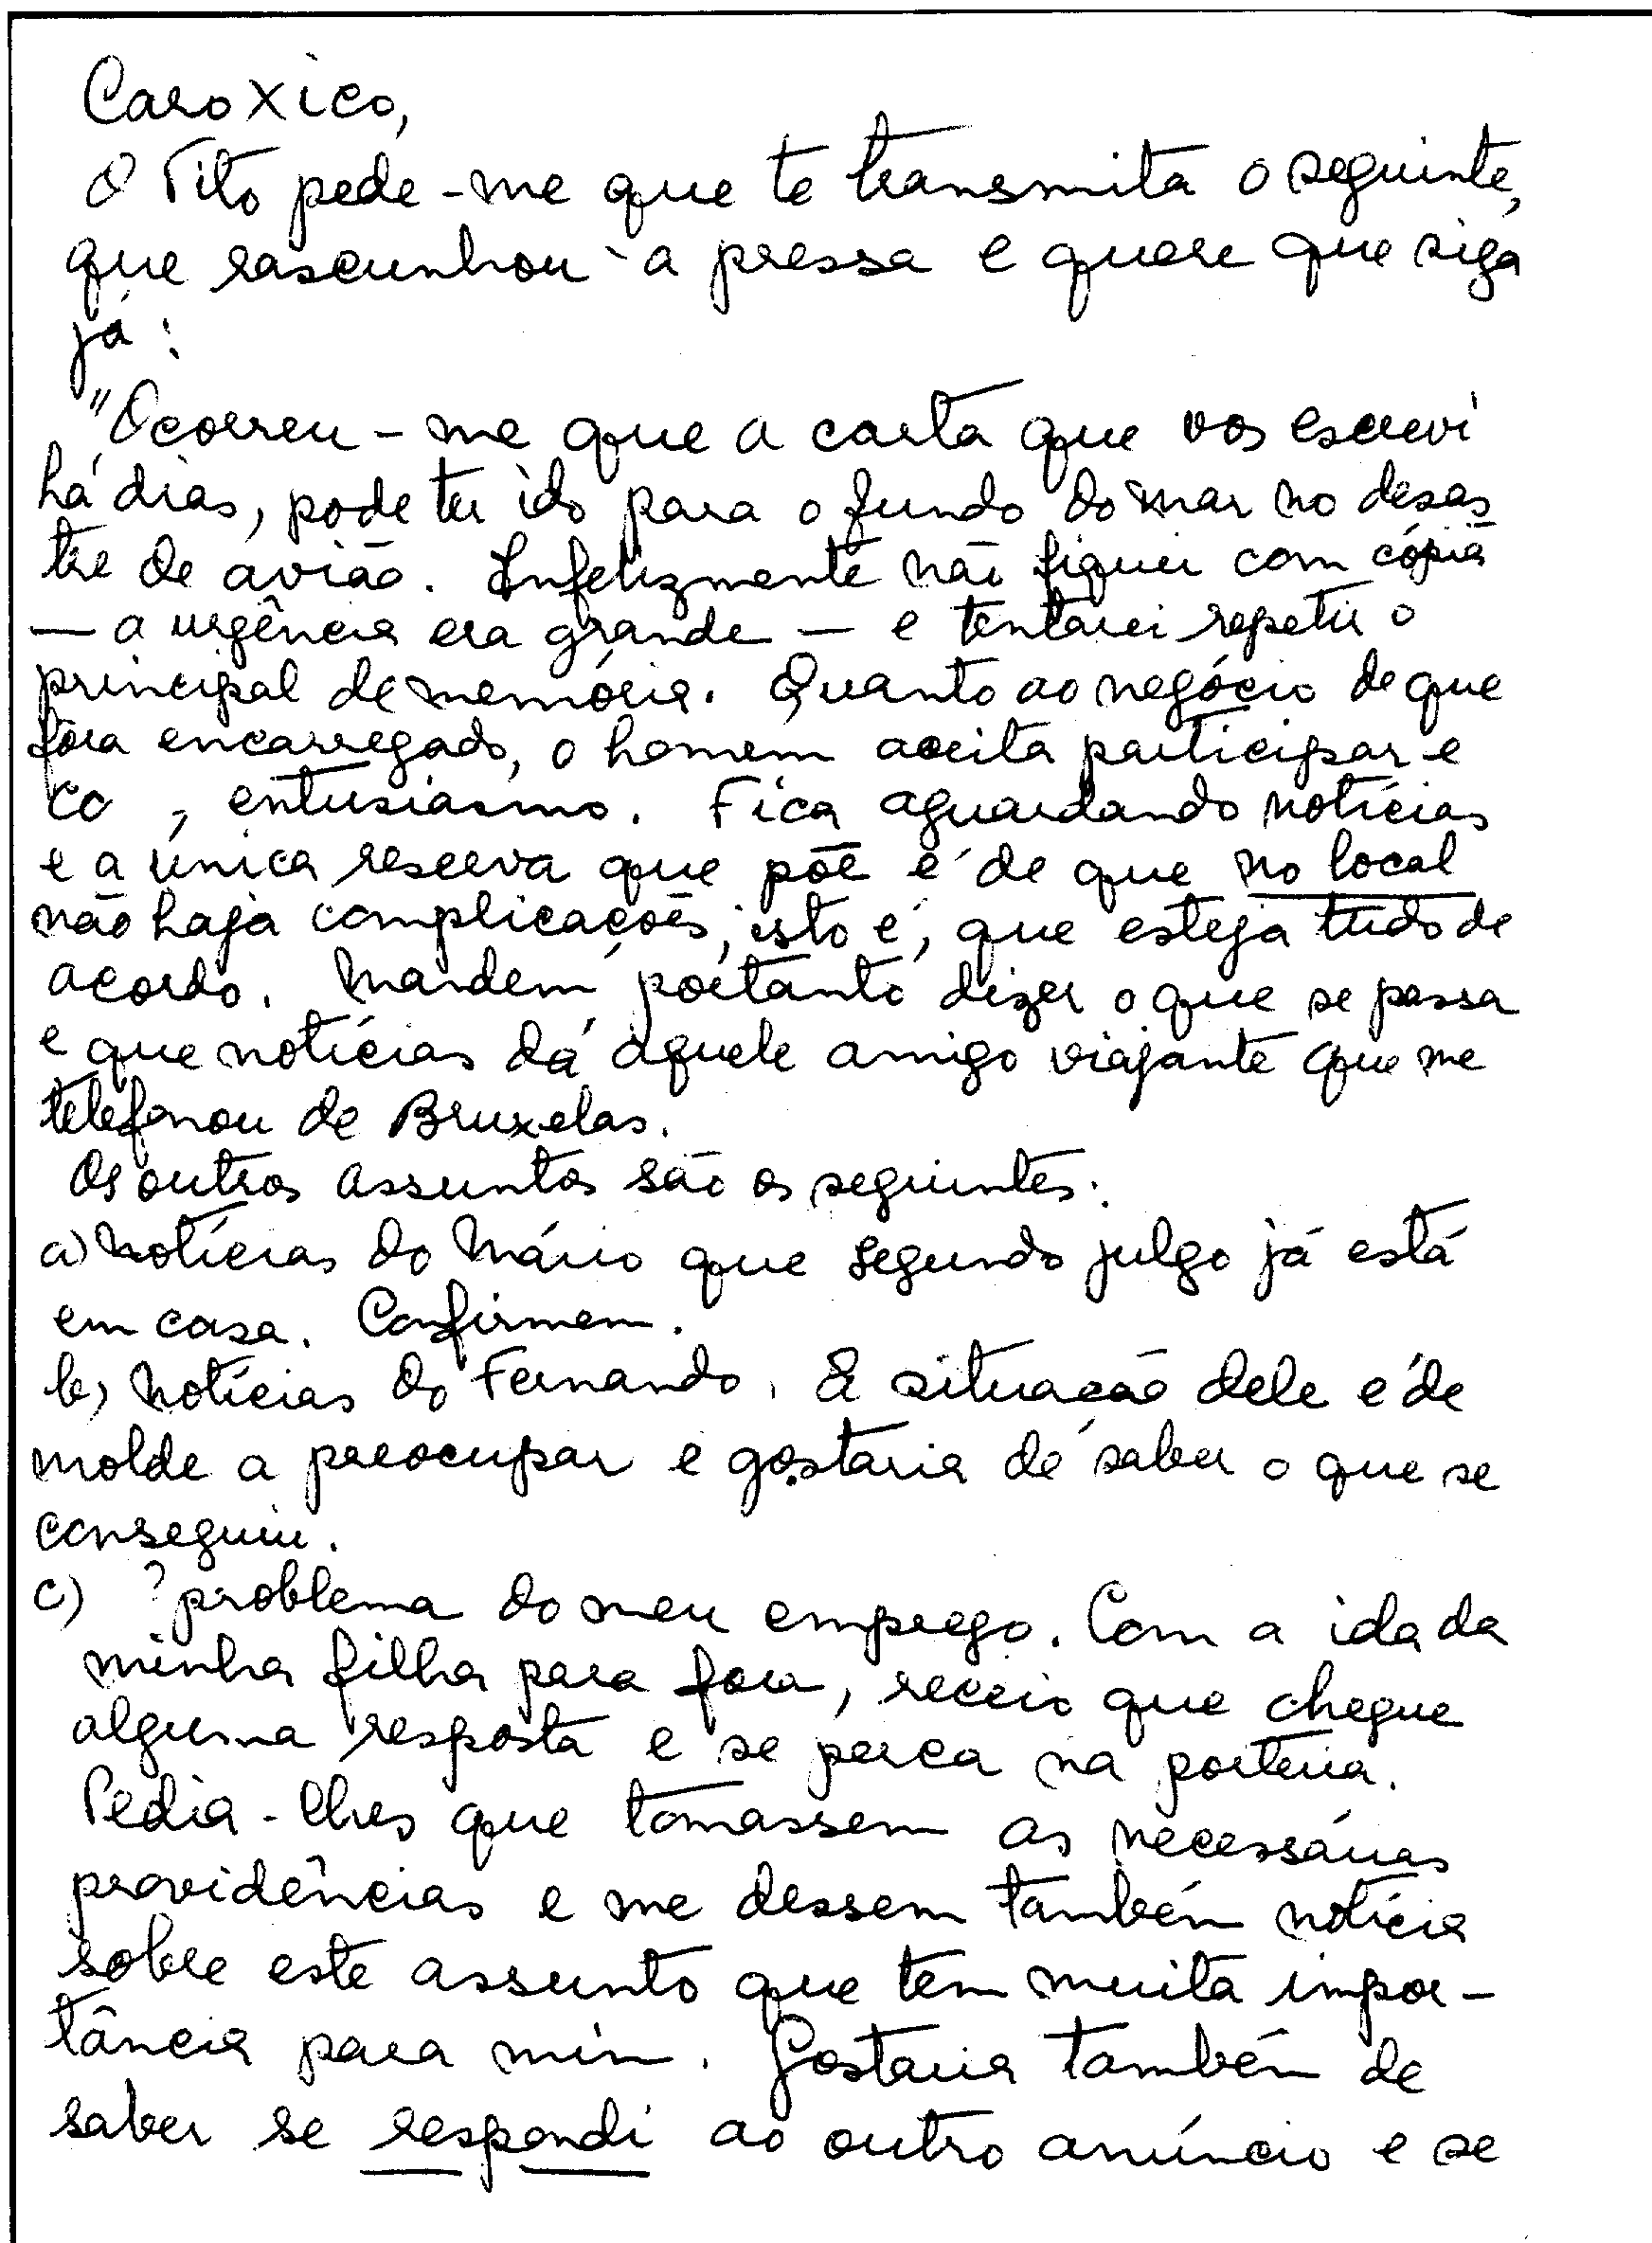 Caro Xico,
O Tito pede-me que te transmita o seguinte,
que rascunhou à pressa e quere que siga
já:
"Ocorreu-me que a carta que vos escrevi
há dias, pode ter ido para o fundo do mar no desas
tre de avião. Infelizmente não fiquei com cópia
— a urgência era grande — e tentarei repetir o
principal de memória. Quanto ao negócio de que
fôra encarregado, o homem aceita participar e
co , entusiasmo. Fica aguardando notícias
e a única reserva que põe é de que no local
não haja complicações, isto é, que esteja tudo de
acordo. Mandem portanto dizer o que se passa
e que notícias dá aquele amigo viajante que me
telefonou de Bruxelas.
Os outros assuntos são os seguintes:
a) Notícias do Mário que segundo julgo já está
em casa. Confirmem.
b) Notícias do Fernando. A situação dele é de
molde a preocupar e gostaria de saber o que se
conseguiu.
c) ? problema do meu emprego. Com a ida da
minha filha para fora, receio que chegue
alguma resposta e se perca na porteira.
Pedia-lhes que tomassem as necessárias
providências e me dessem também notícia
sobre este assunto que tem muita impor-
tância para mim. Gostaria também de
saber se respondi ao outro anúncio e se